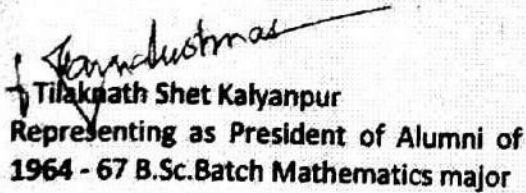 Tilaknath Shet Kalyanpur
Representing as President of Alumni of
1964 - 67 B.Sc.Batch Mathematics major